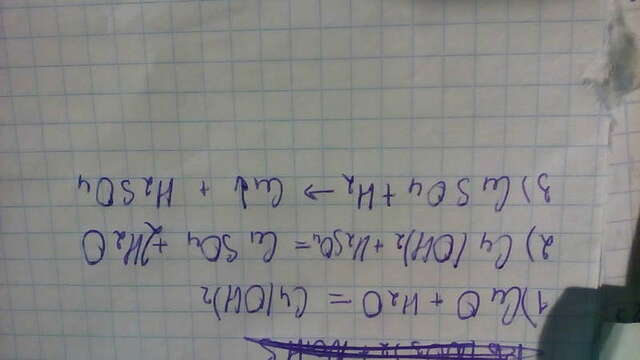 1) CuO + H2O = Cu(OH)2
2) Cu(OH)2 + H2SO4 = CuSO4 + 2H2O
3) CuSO4 + H2 → Cu↓ + H2SO4